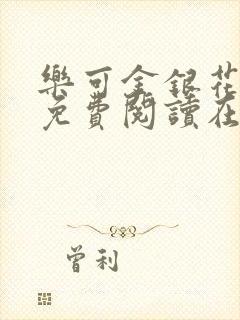 樂可金銀花
免費閱讀在
曾利